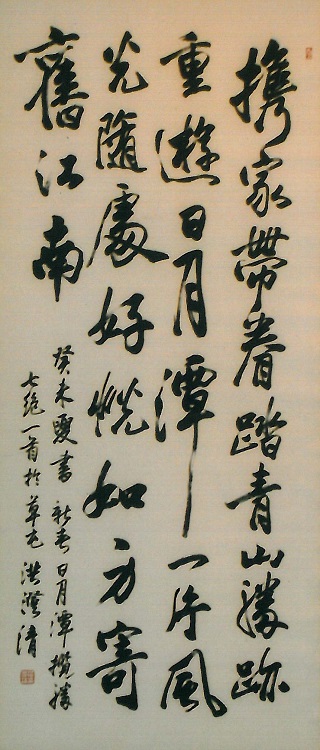 携家帶眷踏青山勝跡
重遊日月潭一片風
光隨處好恍如方寄
舊江南
癸未夏書 新春日月潭攬勝
七絕一首於草屯 洪清